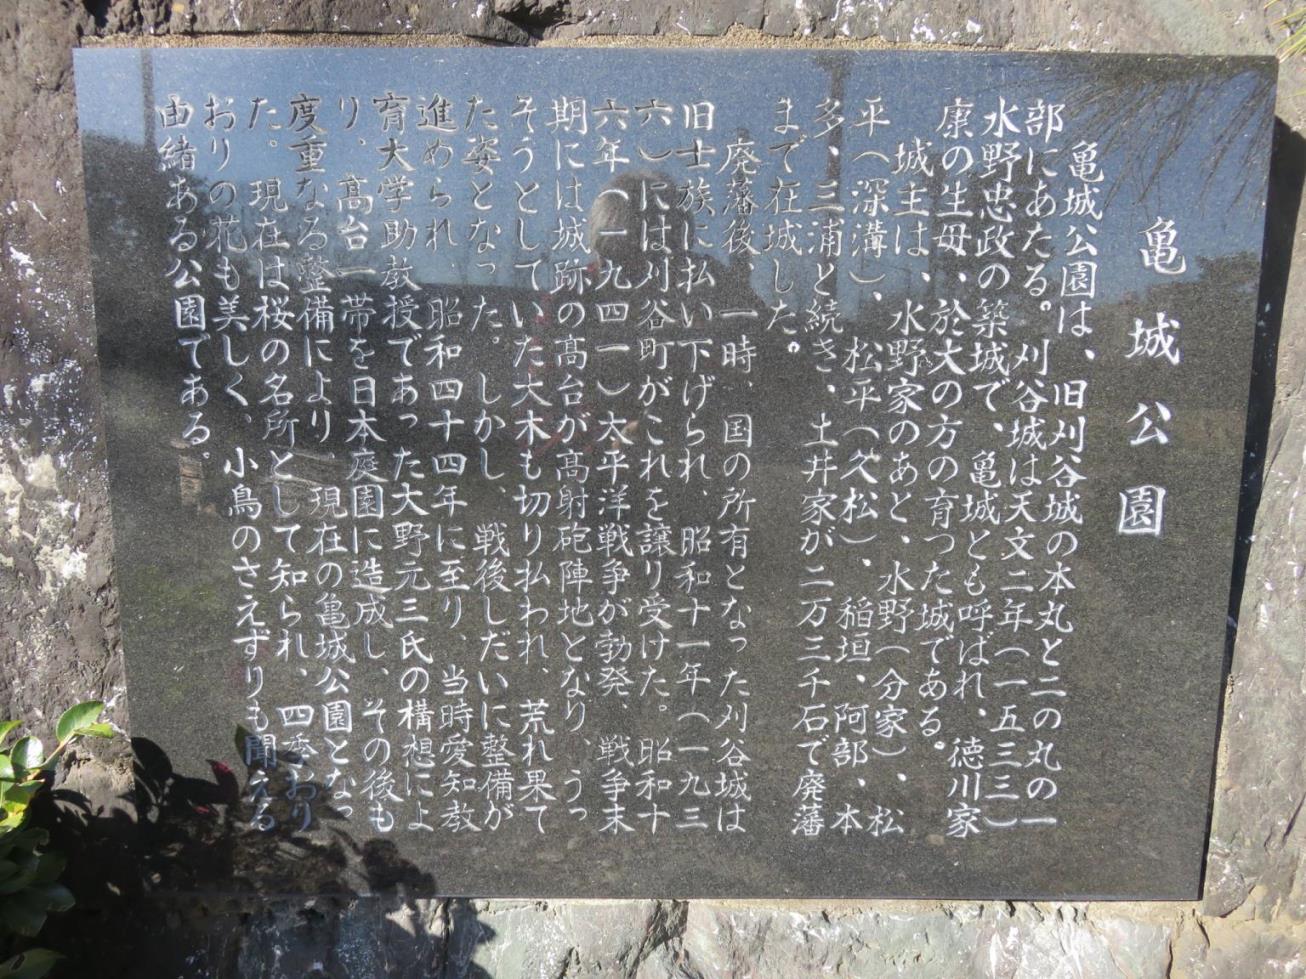 亀城公園
亀城公園は、旧刈谷城の本丸と二の丸の一
部にあたる。刈谷城は天文二年（一五三三）
水野忠政の築城で、亀城とも呼ばれ、徳川家
康の生母、於大の方の育った城である。
城主は、水野家のあと、水野（分家）、松
平（深溝）、松平（久松）、稲垣、阿部、本
多、三浦と続き、土井家が二万三千石で廃藩
まで在城した。
廃藩後、一時、国の所有となった刈谷城は
旧士族に払い下げられ、昭和十一年（一九三
六）には刈谷町がこれを譲り受けた。昭和十
六年（一九四一）太平洋戦争が勃発、戦争末
期には城跡の高台が高射砲陣地となり、うっ
そうとしていた大木も切り払われ、荒れ果て
た姿となった。しかし、戦後しだいに整備が
進められ、昭和四十四年に至り、当時愛知教
育大学助教授であった大野元三氏の構想によ
り、高台一帯を日本庭園に造成し、その後も
度重なる整備により、現在の亀城公園となっ
た。現在は桜の名所として知られ、四季おり
おりの花も美しく、小鳥のさえずりも聞える
由緒ある公園である。